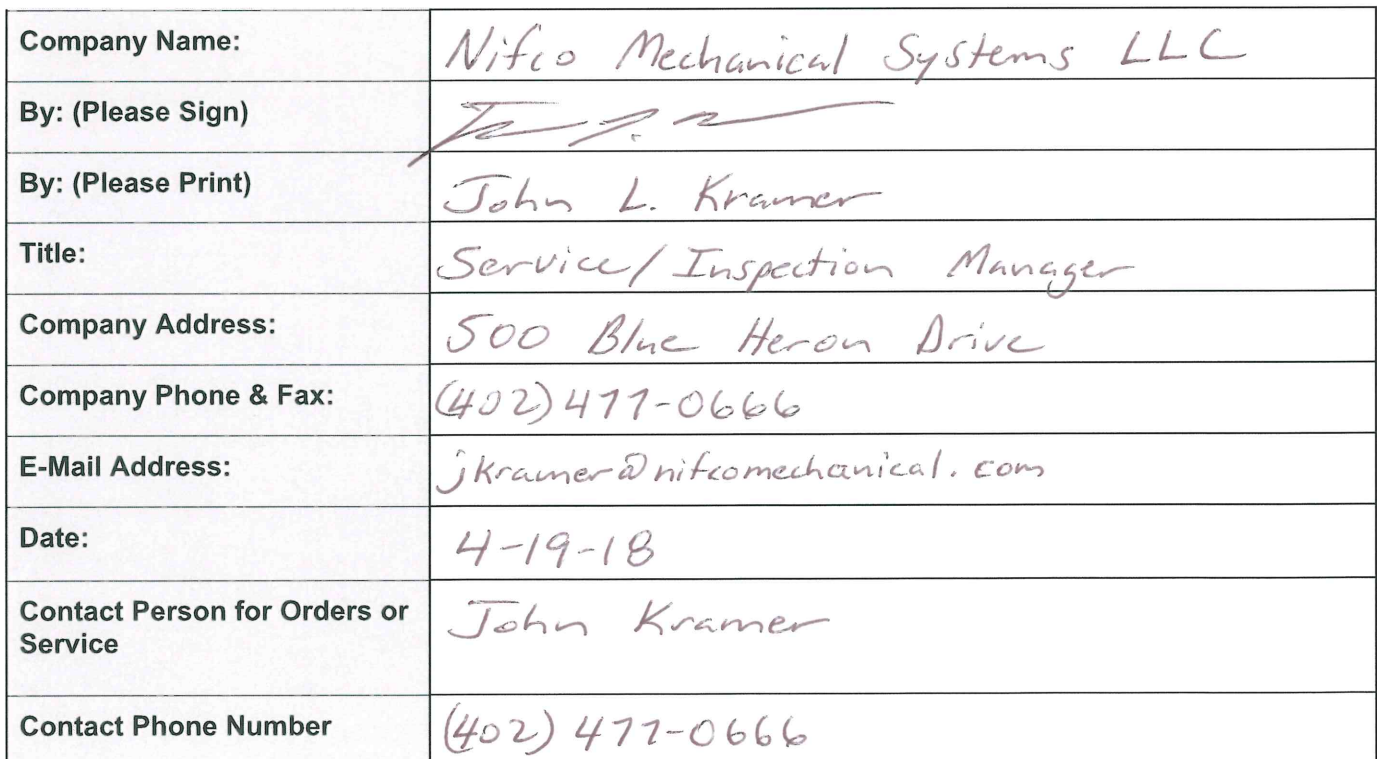 Company Name: Nifco Mechanical Systems LLC
By: (Please Sign)
By: (Please Print) John L. Kramer
Title: Service/Inspection Manager
Company Address: 500 Blue Heron Drive
Company Phone & Fax: (402) 477-0666
E-Mail Address: jkramer@nifcomechanical.com
Date: 4-19-18
Contact Person for Orders or
Service John Kramer
Contact Phone Number (402) 477-0666